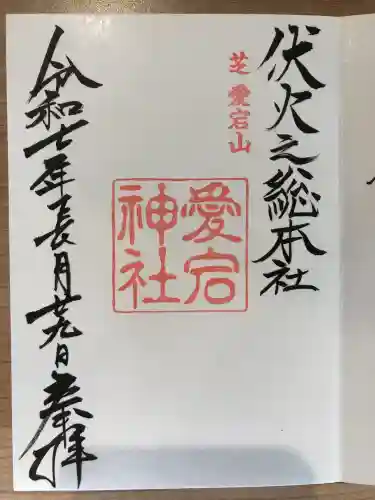 伏火之総本社
芝愛宕山
愛宕神社
令和七年長月廿九日参拝